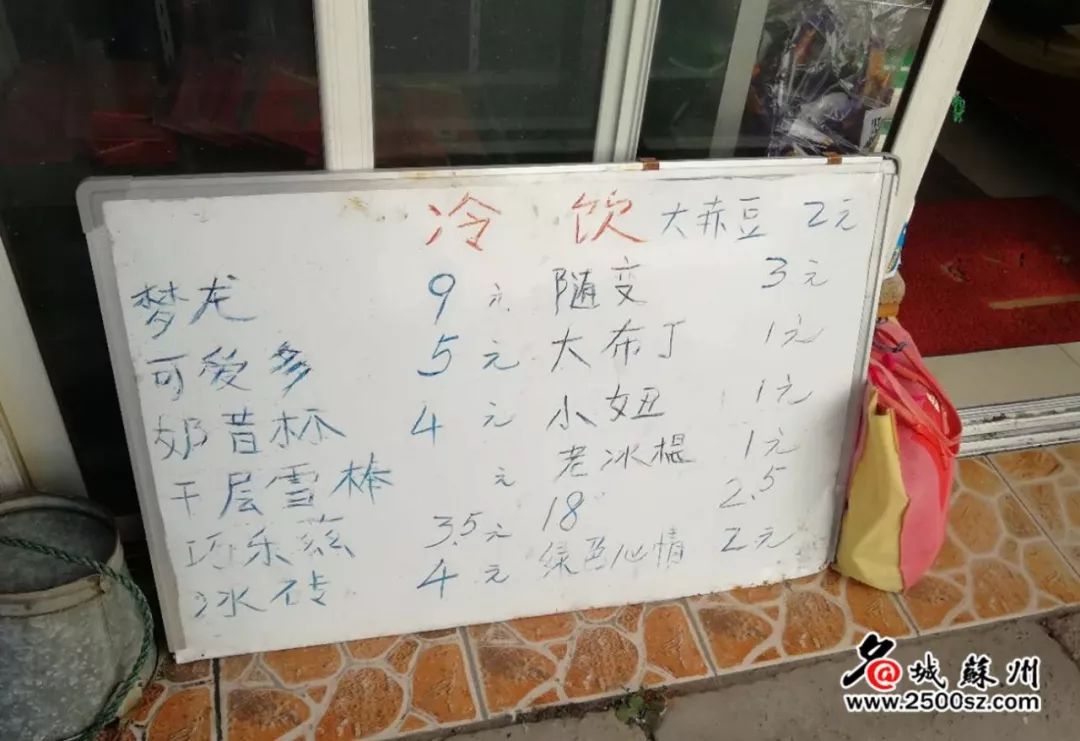 冷饮
大赤豆 2元
梦龙 9元
可爱多 5元
奶昔杯 4元
千层雪棒 元
巧乐兹 3.5元
冰砖 4元
随变 3元
大布丁 1元
小妞 1元
老冰棍 1元
18° 2.5
绿色心情 2元
名@城蘇州
www.2500sz.com